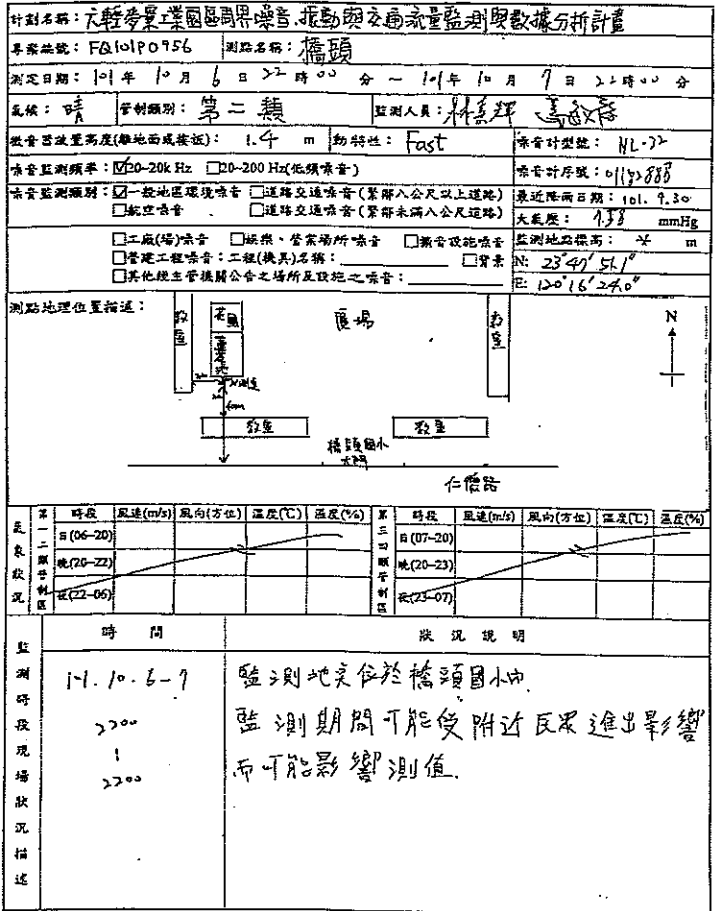 計劃名稱：六輕麥寮工業園區周界噪音.振動與交通流量監測與數據分析計畫
專案編號：FQ101P0956 測點名稱：橋頭
測定日期：101 年 10 月 6 日 22 時 00 分 ~ 101 年 10 月 7 日 22 時 00 分
氣候：晴 管制類別：第二類 監測人員：
微音器放置高度(離地面或樓板)：1.4 m 動特性：Fast 噪音計型號：NL-32
噪音監測頻率：☑20~20k Hz □20~200 Hz(低頻噪音) 噪音計序號：01182888
噪音監測類別：☑一般地區環境噪音 □道路交通噪音(緊鄰八公尺以上道路) 最近降雨日期：101. 9.30
□航空噪音 □道路交通噪音(緊鄰未滿八公尺道路) 大氣壓：758 mmHg
□工廠(場)噪音 □娛樂、營業場所噪音 □擴音設施噪音 監測地點標高： m
□營建工程噪音：工程(機具)名稱： □背景 N: 23°47'51.1"
□其他經主管機關公告之場所及設施之噪音： E: 120°16'24.0"
測點地理位置描述：
教室 花圃 廣場 教室 N
測點
教室 教室
橋頭國小
大門
仁德路
氣象狀況 第一二類管制區 時段 風速(m/s) 風向(方位) 溫度(℃) 溫度(%) 第三四類管制區 時段 風速(m/s) 風向(方位) 溫度(℃) 溫度(%)
日(06~20) 日(07~20)
晚(20~22) 晚(20~23)
夜(22~06) 夜(23~07)
監測時段現場狀況描述 時間 狀況說明
101. 10. 6-7 監測地点位於橋頭國小內
2200 監測期間可能受附近民眾進出影響
2200 而可能影響測值.